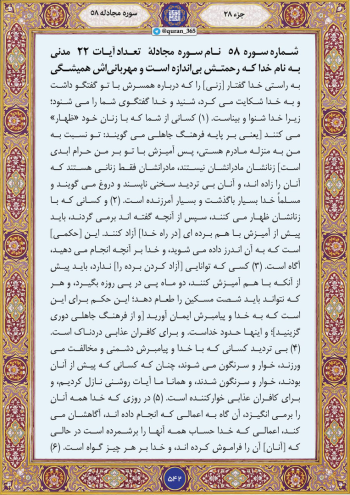 جزء ۲۸
سوره مجادله ۵۸
@quran_365
شماره سوره ۵۸ نام سوره مجادلة تعداد آیات ۲۲ مدنی
به نام خدا که رحمتش بی‌اندازه است و مهربانی‌اش همیشگی
به راستی خدا گفتار [زنی] را که درباره همسرش با تو گفتگو داشت
و به خدا شکایت می کرد، شنید و خدا گفتگوی شما را می شنود؛
زیرا خدا شنوا و بیناست. (۱) کسانی از شما که با زنان خود «ظهار»
می کنند [یعنی بر پایه فرهنگ جاهلی می گویند: تو نسبت به
من به منزله مادرم هستی، پس آمیزش با تو بر من حرام ابدی
است] زنانشان مادرانشان نیستند، مادرانشان فقط زنانی هستند که
آنان را زاده اند، و آنان بی تردید سخنی ناپسند و دروغ می گویند و
مسلماً خدا بسیار باگذشت و بسیار آمرزنده است. (۲) و کسانی که با
زنانشان ظهار می کنند، سپس از آنچه گفته اند برمی گردند، باید
پیش از آمیزش با هم برده ای [در راه خدا] آزاد کنند. این [حکمی]
است که به آن اندرز داده می شوید، و خدا بر آنچه انجام می دهید،
آگاه است. (۳) کسی که توانایی [آزاد کردن برده را] ندارد، باید پیش
از آنکه با هم آمیزش کنند، دو ماه پی در پی روزه بگیرد، و هر
که نتواند باید شصت مسکین را طعام دهد؛ این حکم برای این
است که به خدا و پیامبرش ایمان آورید [و از فرهنگ جاهلی دوری
گزینید]؛ و اینها حدود خداست. و برای کافران عذابی دردناک است.
(۴) بی تردید کسانی که با خدا و پیامبرش دشمنی و مخالفت می
ورزند، خوار و سرنگون می شوند، چنان که کسانی که پیش از آنان
بودند، خوار و سرنگون شدند، و همانا ما آیات روشنی نازل کردیم، و
برای کافران عذابی خوارکننده است. (۵) در روزی که خدا همه آنان
را برمی انگیزد، آن گاه به اعمالی که انجام داده اند، آگاهشان می
کند، اعمالی که خدا حساب همه آنها را برشمرده است در حالی
که [آنان] آن را فراموش کرده اند، و خدا بر هر چیز گواه است. (۶)
۵۴۲